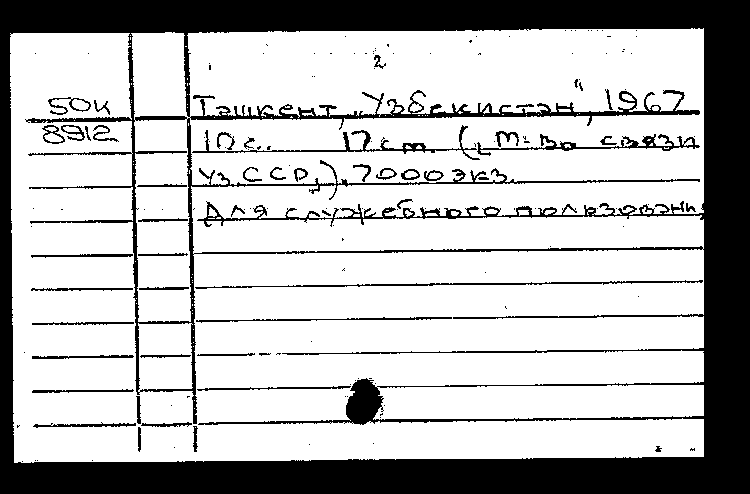 2
50К Ташкент, „Узбекистан“, 1967
8912 10 с. 17 см. ([М-во связи
УзССР]). 7000 экз.
Для служебного пользовани